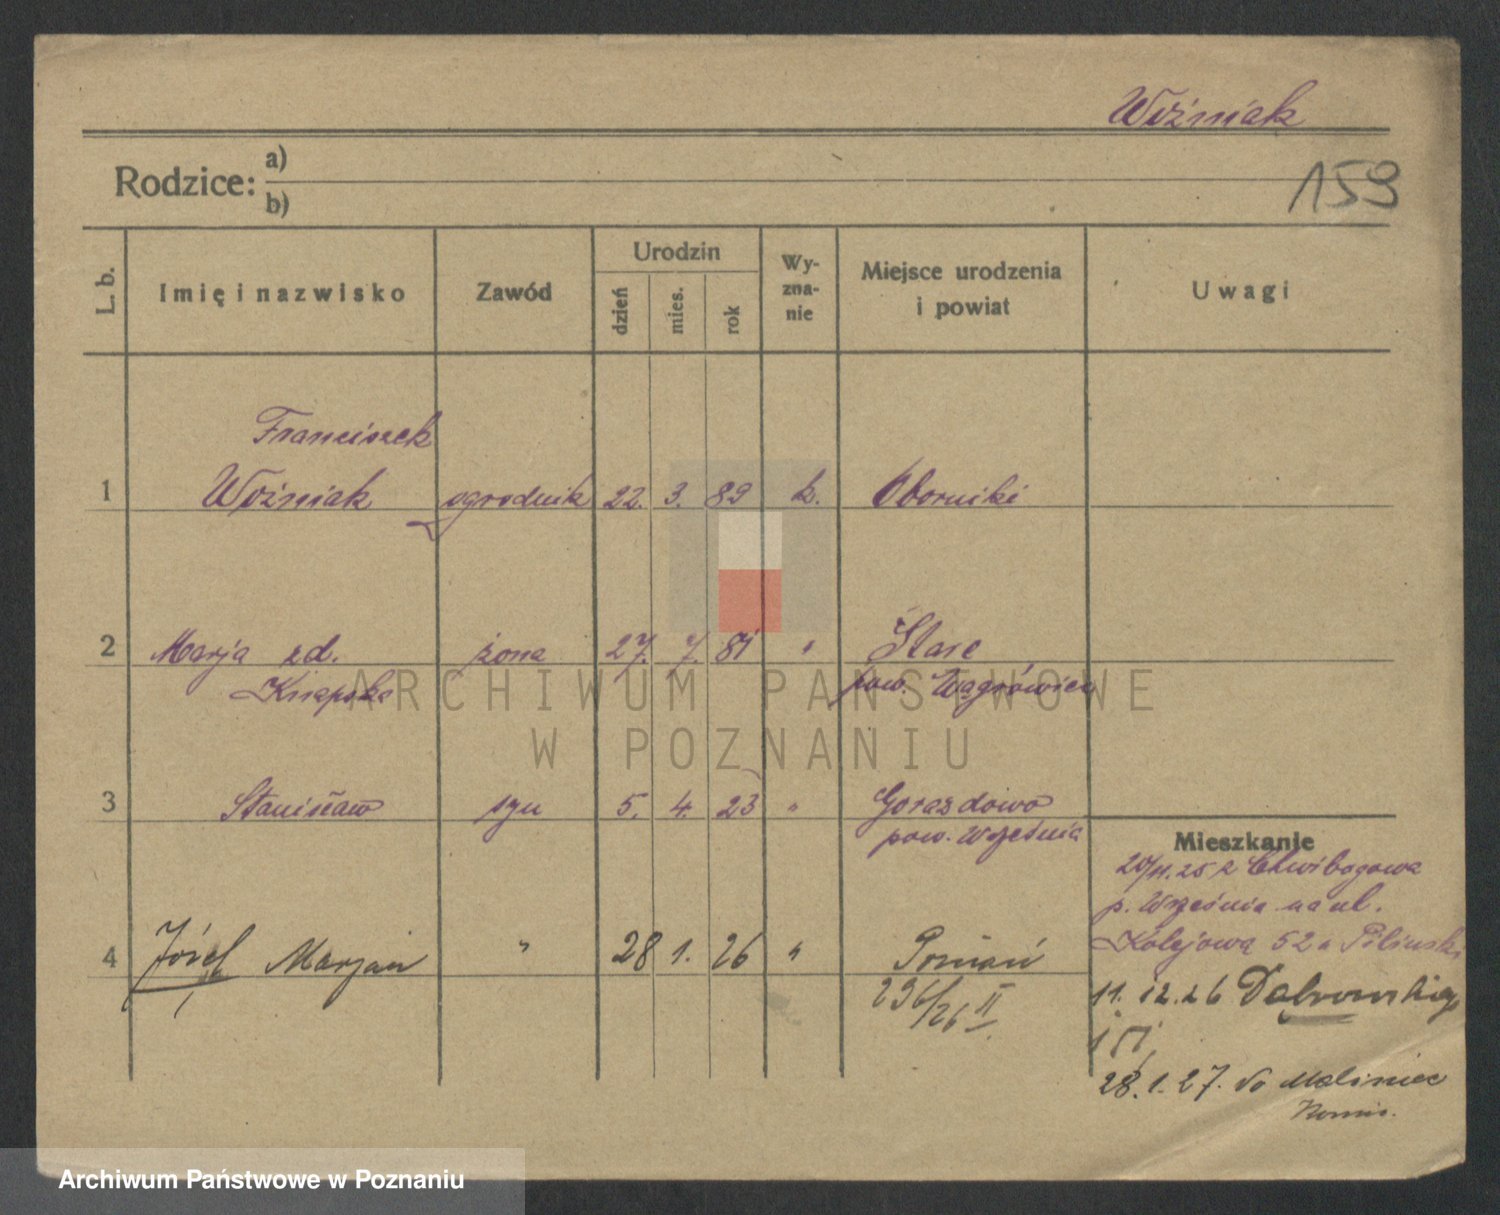 Woźniak
Rodzice: a)
b)
159
L. b.
Imię i nazwisko
Zawód
Urodzin
dzień
mies.
rok
Wy-
zna-
nie
Miejsce urodzenia
i powiat
Uwagi
Franciszek
1 Woźniak ogrodnik 22. 3. 89 k. Oborniki
2 Marja zd. żona 27. 7. 81 " Stare
Knapska pow. Wągrówiec
ARCHIWUM PAŃSTWOWE
W POZNANIU
3 Stanisław syn 5. 4. 23 " Gorazdowo
pow. Września
4 Józef Marjan " 28 1. 26 " Poznań
296/26 II
Mieszkanie
20/11.25 z Chwibogowa
p. Września na ul.
Kolejową 52a
11. 12. 26 Dąbrowskiego
151,
28. 1. 27. do Maliniec
Archiwum Państwowe w Poznaniu